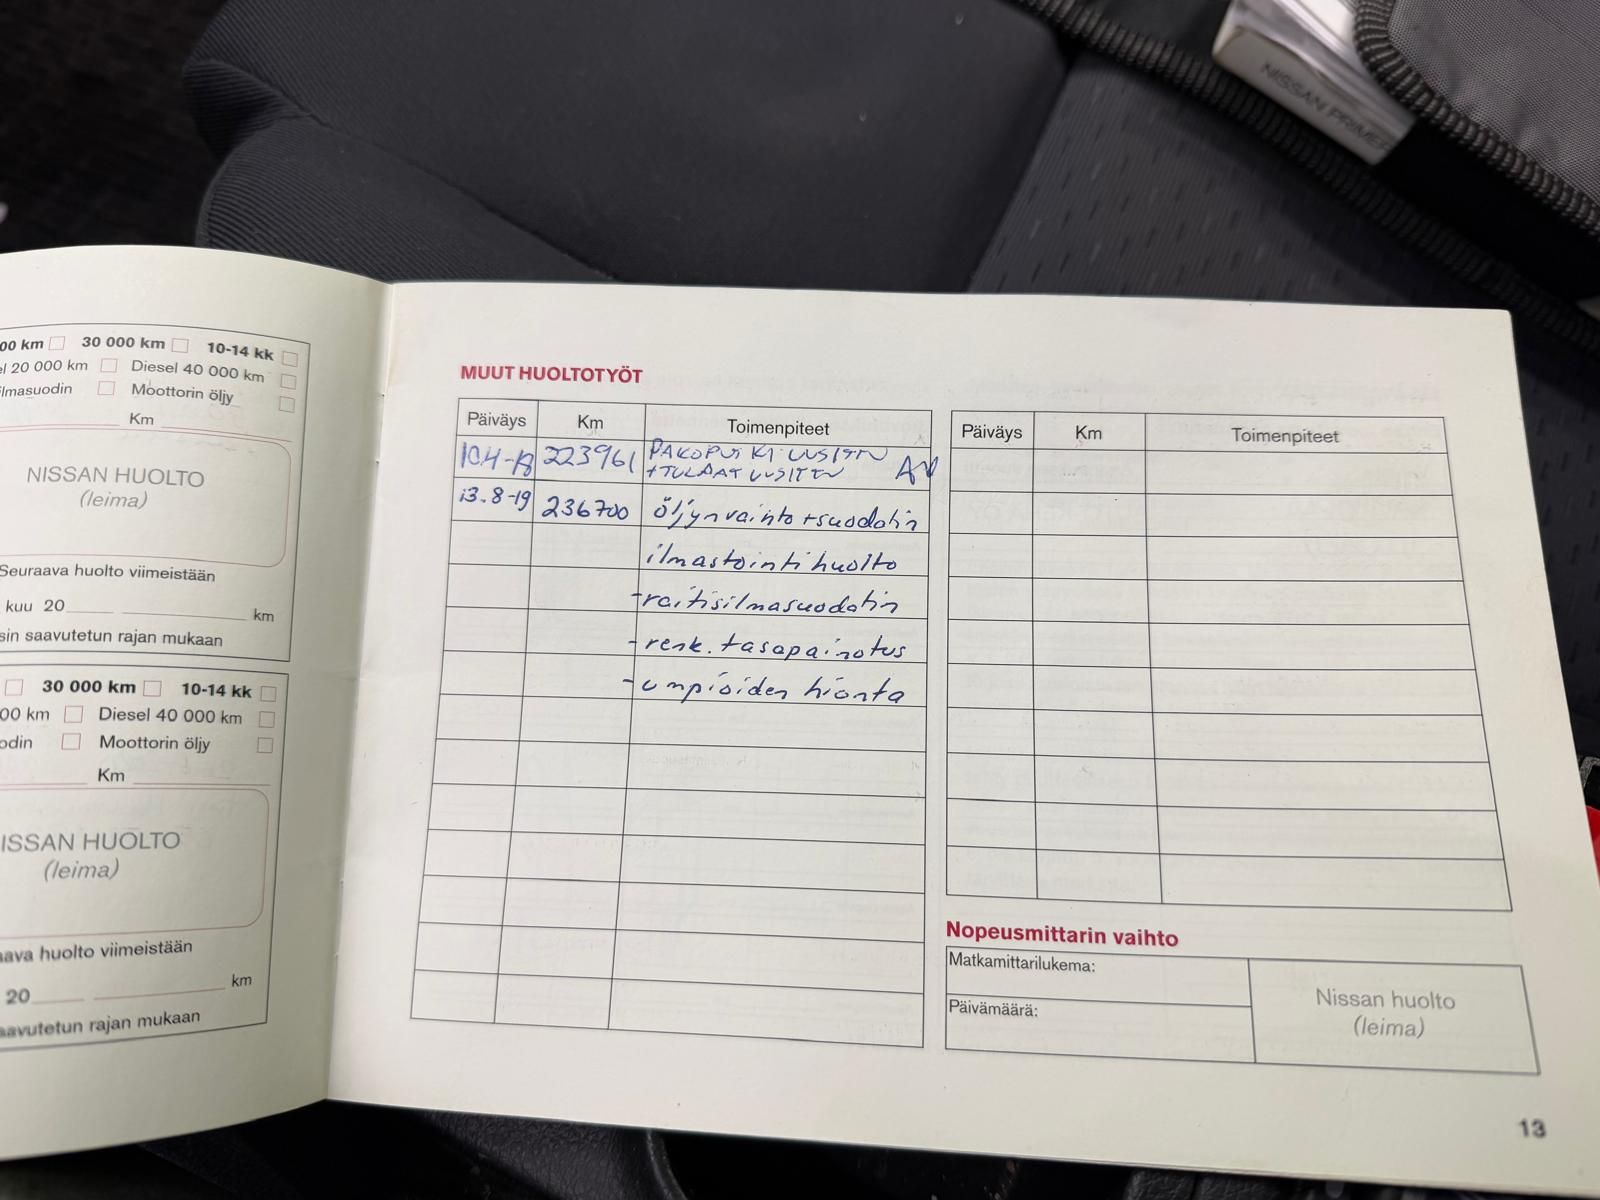 NISSAN PRIMER
00 km 30 000 km 10-14 kk
el 20 000 km Diesel 40 000 km
ilmasuodin Moottorin öljy
Km
NISSAN HUOLTO
(leima)
Seuraava huolto viimeistään
kuu 20 km
sin saavutetun rajan mukaan
30 000 km 10-14 kk
00 km Diesel 40 000 km
odin Moottorin öljy
Km
ISSAN HUOLTO
(leima)
aava huolto viimeistään
20 km
aavutetun rajan mukaan
MUUT HUOLTOTYÖT
Päiväys Km Toimenpiteet
10.4-18 223961 PAKOPUTKI UUSITTU
+TULPAT UUSITTU
13.8-19 236700 öljynvaihto +suodatin
ilmastointi huolto
-raitisilmasuodatin
- renk. tasapainotus
- umpioiden hionta
Päiväys Km Toimenpiteet
Nopeusmittarin vaihto
Matkamittarilukema:
Päivämäärä:
Nissan huolto
(leima)
13